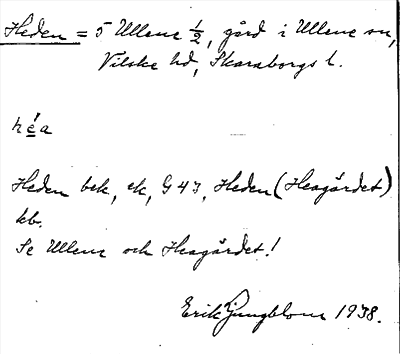 Heden = 5 Ullene ½, gård i Ullene sn,
Vilske hd, Skaraborgs l.
héa
Heden bek, ek, G 43, Heden (Heagärdet)
kb.
Se Ullene och Heagärdet!
Erik Ljungblom 1938.